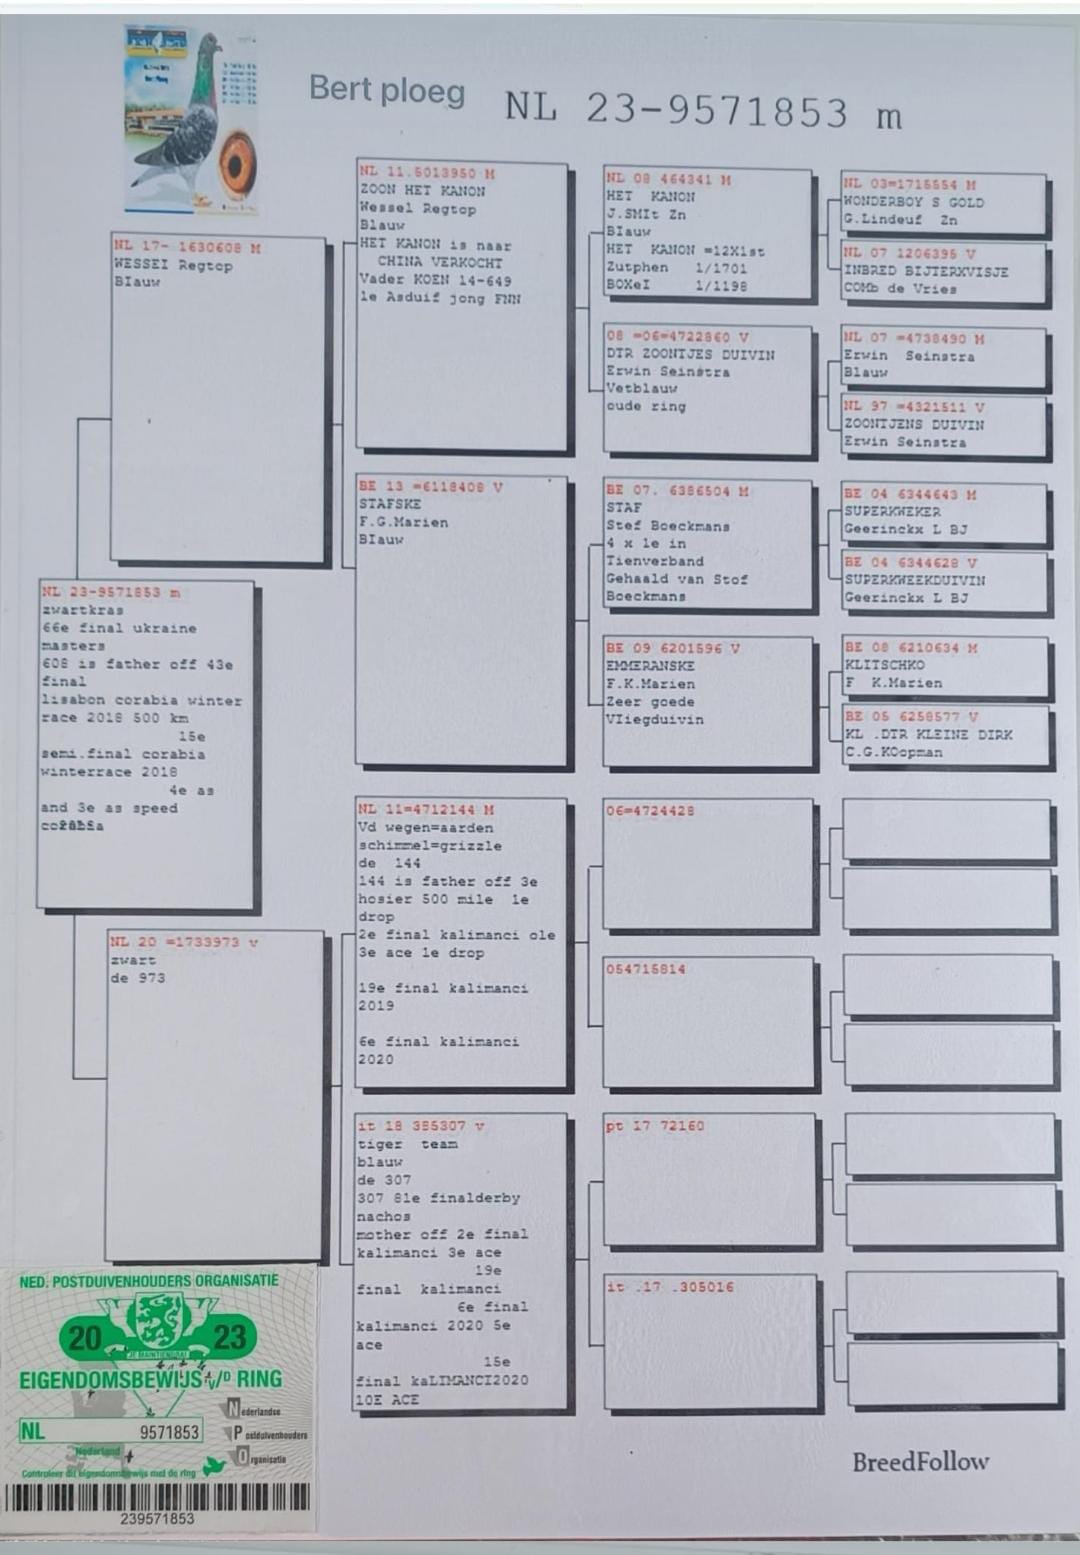 Bert ploeg
NL 23-9571853 m
NL 17- 1630608 M
WESSEI Regtop
BIauw
NL 23-9571853 m
zwartkras
66e final ukraine
masters
608 is father off 43e
final
lisabon corabia winter
race 2018 500 km
15e
semi.final corabia
winterrace 2018
4e as
and 3e as speed
NL 20 =1733973 v
zwart
de 973
NL 11.5013950 M
ZOON HET KANON
Wessel Regtop
Blauw
HET KANON is naar
CHINA VERKOCHT
Vader KOEN 14-649
1e Asduif jong FNN
BE 13 =6118408 V
STAFSKE
F.G.Marien
BIauw
NL 11=4712144 M
Vd wegen=aarden
schimmel=grizzle
de 144
144 is father off 3e
hosier 500 mile 1e
drop
2e final kalimanci ole
3e ace 1e drop
19e final kalimanci
2019
6e final kalimanci
2020
it 18 385307 v
tiger team
blauw
de 307
307 81e finalderby
nachos
mother off 2e final
kalimanci 3e ace
19e
final kalimanci
6e final
kalimanci 2020 5e
ace
15e
final kaLIMANCI2020
10E ACE
NL 08 464341 M
HET KANON
J.SMIt Zn
BIauw
HET KANON =12X1st
Zutphen 1/1701
BOXeI 1/1198
08 =06=4722860 V
DTR ZOONTJES DUIVIN
Erwin Seinstra
Vetblauw
oude ring
BE 07. 6386504 M
STAF
Stef Boeckmans
4 x 1e in
Tienverband
Gehaald van Stof
Boeckmans
BE 09 6201596 V
EMMERANSKE
F.K.Marien
Zeer goede
VIiegduivin
06=4724428
054715814
pt 17 72160
it .17 .305016
NL 03=1715554 M
WONDERBOY S GOLD
G.Lindeuf Zn
NL 07 1206395 V
INBRED BIJTERKVISJE
COMb de Vries
NL 07 =4738490 M
Erwin Seinstra
Blauw
NL 97 =4321511 V
ZOONTJENS DUIVIN
Erwin Seinstra
BE 04 6344643 M
SUPERKWEKER
Geerinckx L BJ
BE 04 6344628 V
SUPERKWEEKDUIVIN
Geerinckx L BJ
BE 08 6210634 M
KLITSCHKO
F K.Marien
BE 05 6258577 V
KL .DTR KLEINE DIRK
C.G.KOopman
NED. POSTDUIVENHOUDERS ORGANISATIE
20 23
EIGENDOMSBEWIJS v/D RING
NL 9571853
Nederland
Nederlandse
Postduivenhouders
Organisatie
Controleer dit eigendomsbewijs met de ring
239571853
BreedFollow